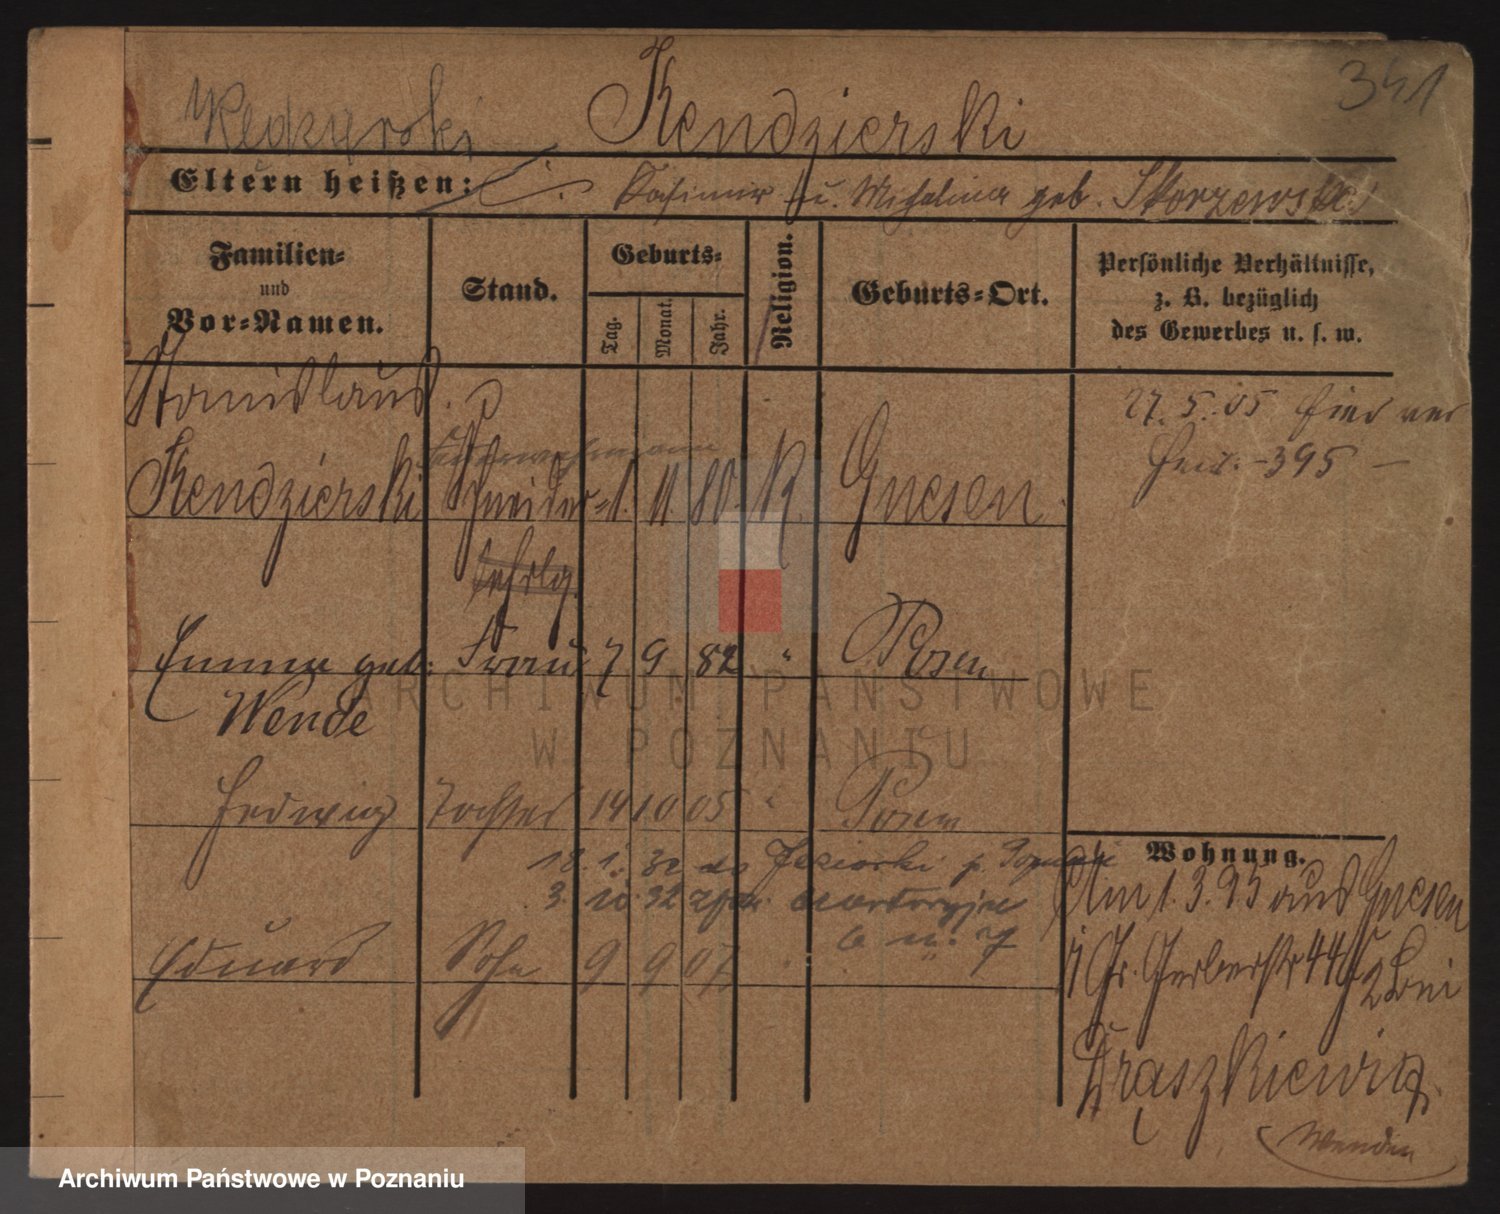 341
Kendzierski
Eltern heißen: Kasimir u. Michalina geb. Skorzewska
Familien- und Vor-Namen.
Stand.
Geburts-
Tag.
Monat.
Jahr.
Religion.
Geburts-Ort.
Persönliche Verhältnisse, z. B. bezüglich des Gewerbes u. s. w.
Stanislaus
Kendzierski Schneider- 1. 11. 80. K. Gnesen.
lehrlg.
27. 5. 05
395 –
Emma geb: Frau 7 9 82 " Posen
Wende
Hedwig Tochter 14 10 05 " Posen
18. 1. 32 do p.
3. 10. 32
6 m. 7
Eduard Sohn 9 9 07
Wohnung.
Am 1. 3. 95 aus Gnesen
Gr. Gerberstr 44 bei
Draszkiewicz.
Wenden
ARCHIWUM PAŃSTWOWE
W POZNANIU
Archiwum Państwowe w Poznaniu